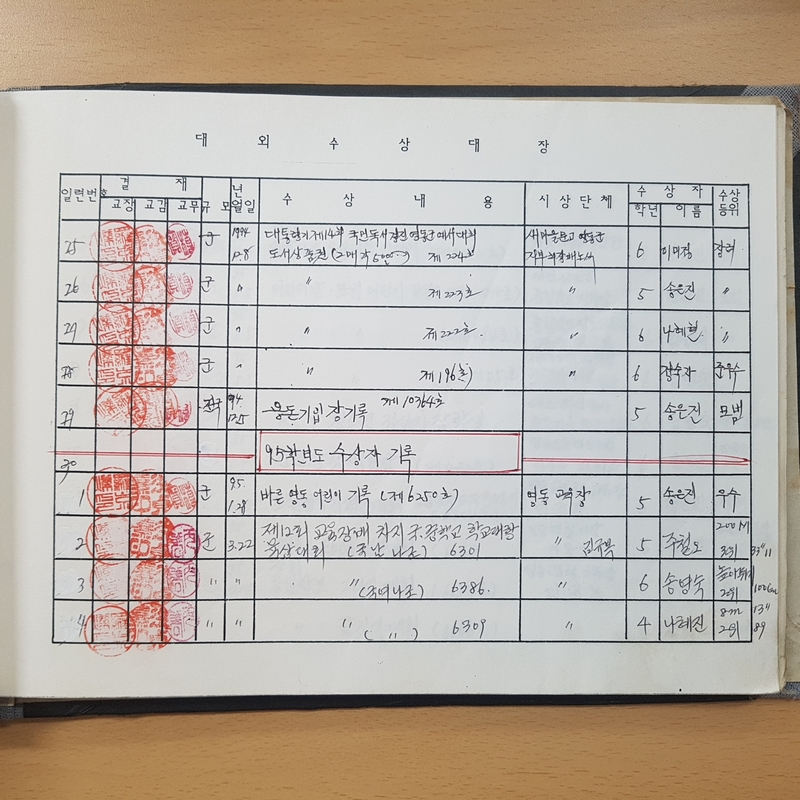 대 외 수 상 대 장
일련번호 결 재 규모 년월일 수 상 내 용 시상단체 수 상 자 수상등위
교장 교감 교무 학년 이름
25 군 1994 12.8 대통령기 제14회 국민독서경진 영동군 예서대회 새마을문고 영동군 6 이미정 장려
도서상품권 제224호
26 군 〃 제223호 〃 5 송은진 〃
27 군 〃 〃 제222호 〃 6 나혜현 〃
28 군 〃 〃 제196호 〃 6 장숙자 준우수
29 전국 94 12.5 용돈기입장기록 제10364호 5 송은진 모범
30 95학년도 수상자 기록
1 군 95 1.28 바른 영동 어린이 기록 (제6250호) 영동 교육장 5 송은진 우수
2 군 3.22 제12회 교육장배 차지 국.중학교 학교대항 〃 5 주철오 200M
육상대회 (국남나조) 6301 3위 33"11
3 〃 〃 〃 (국여나조) 6386. 〃 6 송명숙 높이뛰기 2위 100cm
4 〃 〃 〃 ( 〃 ) 6309 〃 4 나혜진 80m 13"
2위 89